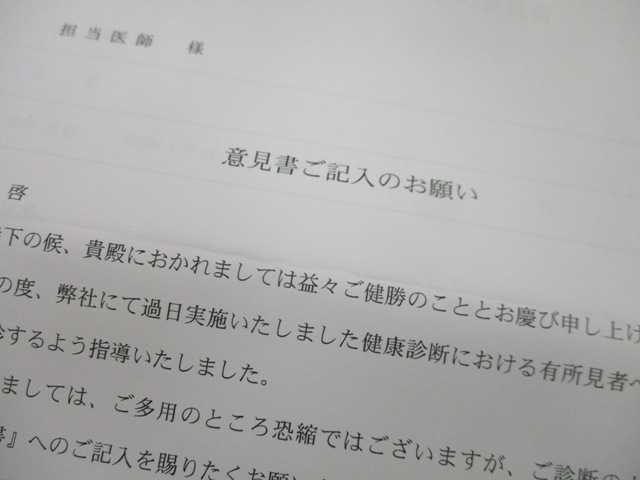 担当医師　様
意見書ご記入のお願い
啓
下の候、貴殿におかれましては益々ご健勝のこととお慶び申し上げ
の度、弊社にて過日実施いたしました健康診断における有所見者へ
するよう指導いたしました。
ましては、ご多用のところ恐縮ではございますが、ご診断の
』へのご記入を賜りたくお願い